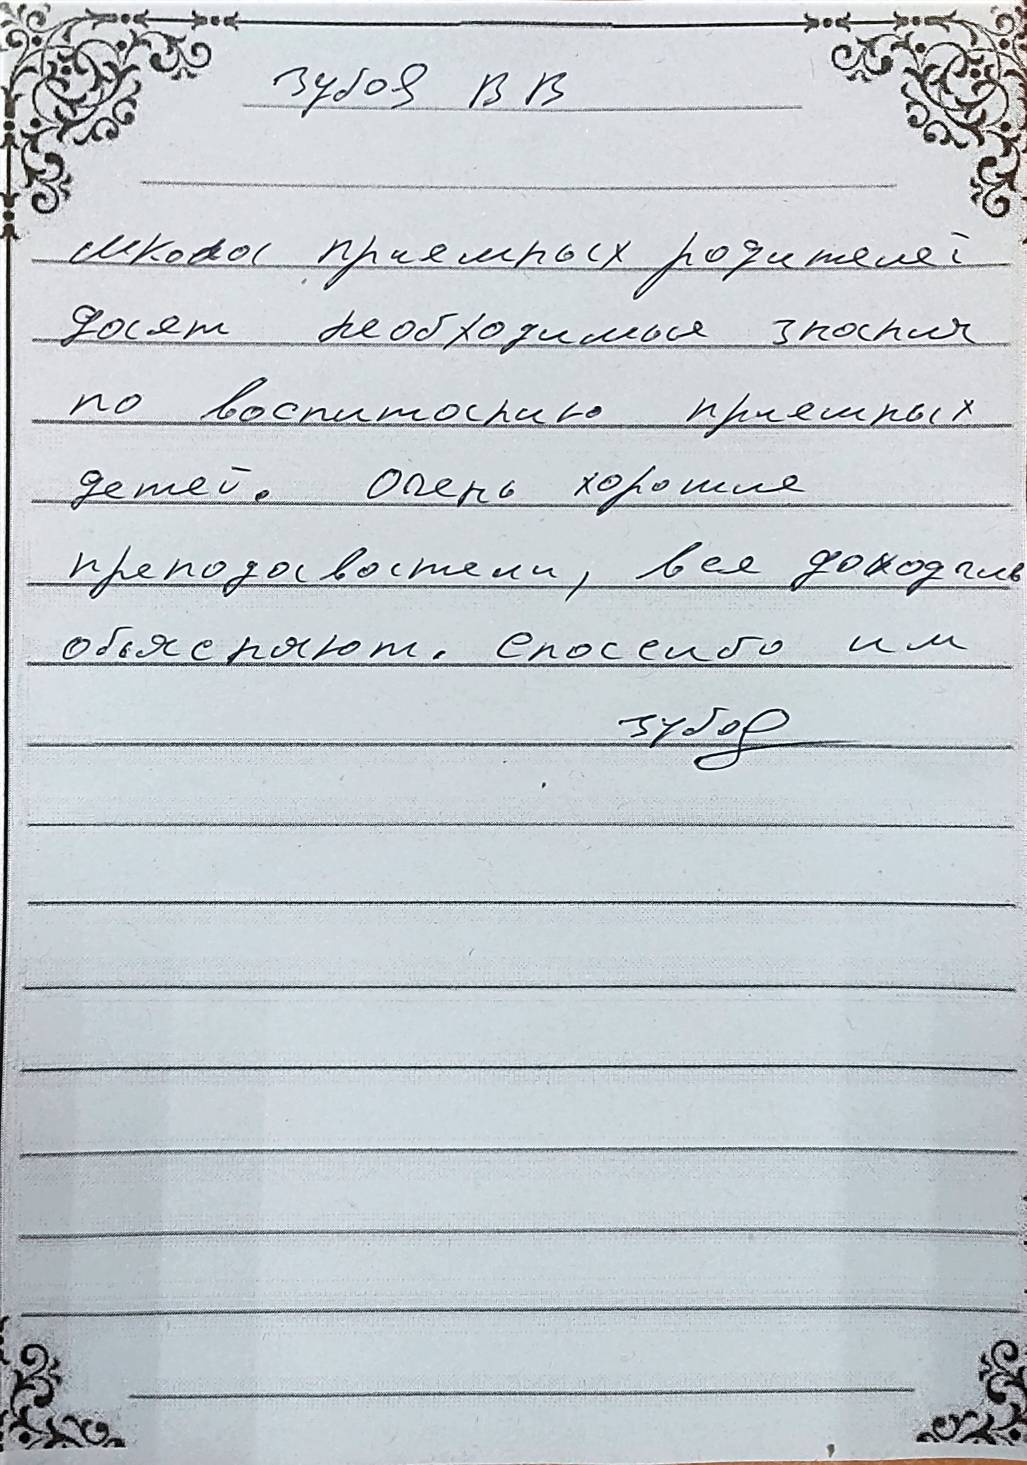 Зубов В В
школа приемных родителей
дает необходимые знания
по воспитанию приемных
детей. Очень хорошие
преподаватели, все доходчив
обьясняют. Спасибо им
Зубов